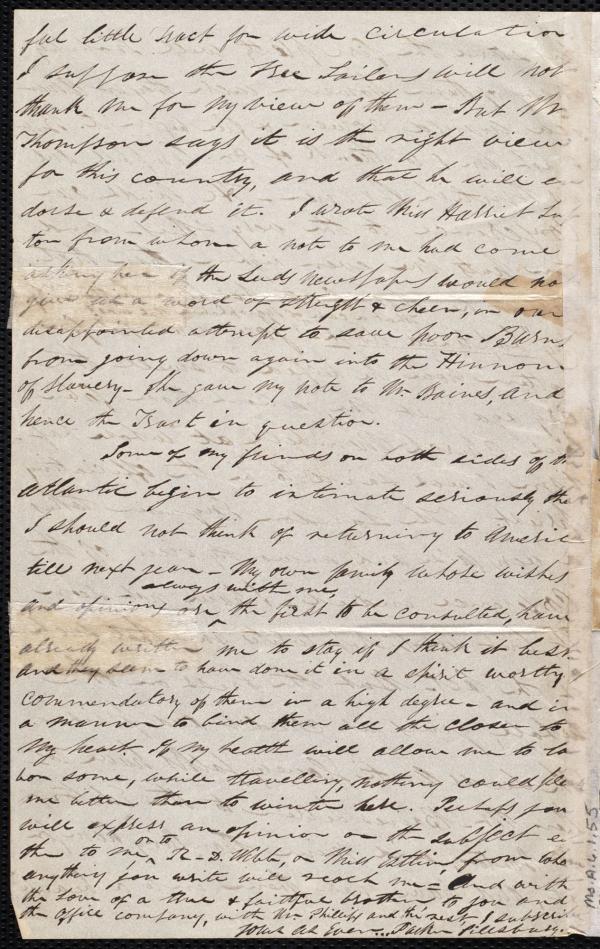 ful little Tract for wide circulation
I suppose the Free Soilers will not
thank me for my view of them - But Mr
Thompson says it is the right view
for this country, and that he will en
dorse & defend it. I wrote Miss Harriet Lup
ton from whom a note to me had come
asking her if the Leeds Newspapers would no
give us a word of strength & cheer, in our
disappointed attempt to save poor Burns
from going down again into the Hinnom
of Slavery - She gave my note to Mr Baines, and
hence the Tract in question.
Some of my friends on both sides of the
Atlantic begin to intimate seriously tha
I should not think of returning to Americ
till next year - My own family whose wishes
always with me,
and opinions are the first to be consulted, have
already written me to stay if I think it best
and they seem to have done it in a spirit worthy
commendatory of them in a high degree - and in
a manner to bind them all the closer to
my heart. If my health will allow me to la
bor some, while travelling, nothing could ple
me better than to winter here. Perhaps you
will express an opinion on the subject ei
ther to me, or to R. D. Webb, or Miss Estlin, from whom
anything you write will reach me - And with
the love of a true & faithful brother to you and
the office company, with Mr Phillips and the rest I subscribe
Yours as Ever... Parker Pillsbury.
Ms.A.1.55